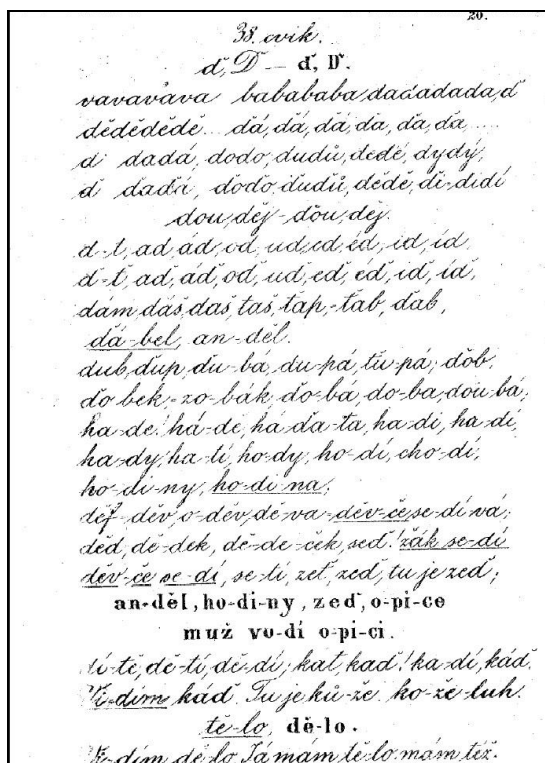 20.
38. cvik.
ď, Ď — ď, Ď.
vavavava babababa, dadadada, ď
dědědědě... ďá, ďá, ďá, ďa, ďa, ďa....
d dadá, dodo, dudů, dedé, dydý,
ď ďaďá, ďoďo, ďuďů, dědě, di-didí
dou, děj - ďou, děj.
d-t, ad, ád, od, ud, ed, éd, id, íd,
ď-ť, aď, áď, oď, uď, eď, éď, iď, íď,
dám, dáš, daš, taš, ťap,-ťab, ďab,
ďá-bel, an-děl.
dub, ďup, du-bá, du-pá, tu-pá; ďob,
ďo-bek,-zo-bák, ďo-bá, do-ba, dou-bá;
ha-de! há-de, há-ďa-ta, ha-di, ha-dí,
ha-dy, ha-tí, ho-dy, ho-dí, cho-dí,
ho-di-ny, ho-di-na;
děv, o-děv, dě-va-děv-če, se-dí-vá;
děd, dě-dek, dě-de-ček, seď! žák se-dí
děv-če se-dí, se-tí, zeť, zeď, tu je zeď;
an-děl, ho-di-ny, zeď, o-pi-ce
muž vo-dí o-pi-ci.
dí-tě, dě-tí, dě-dí; kat, kaď! ka-dí, káď.
Vi-dím káď. Tu je ků-že ko-že-luh.
tě-lo, dě-lo.
Vi-dím dě-lo. Já mám tě-lo, mám též.